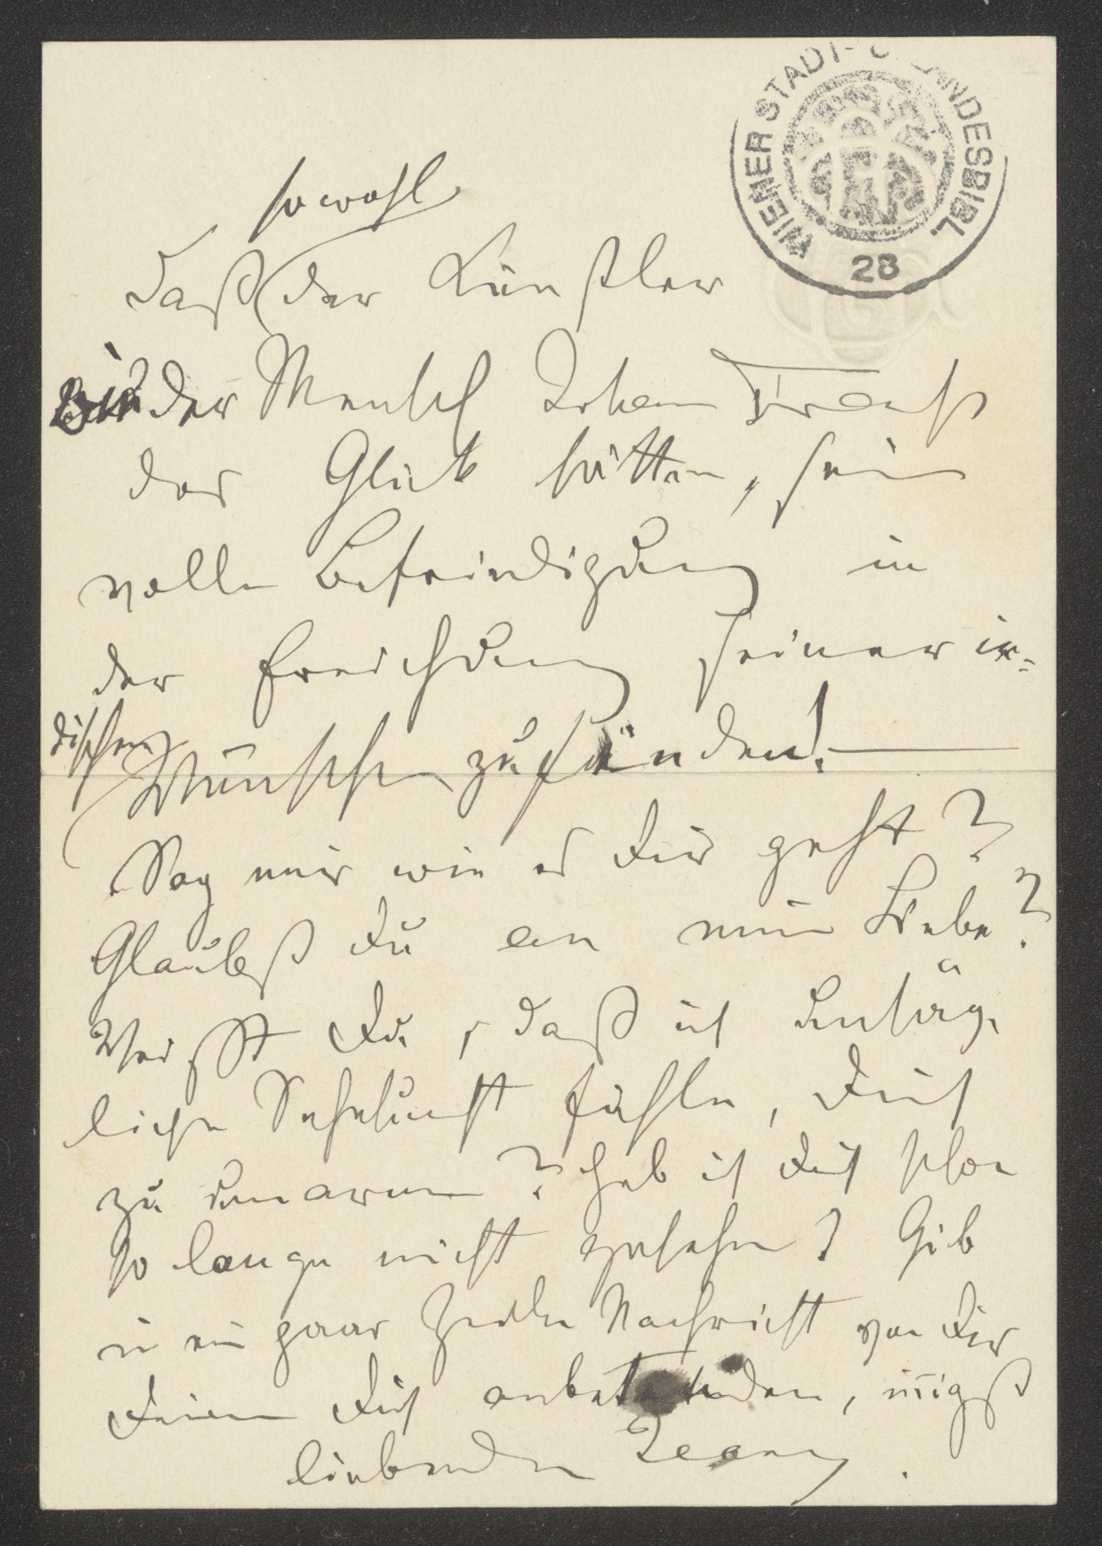 WIENER STADT- U. LANDESBIBL.
28
sowohl
Daß der Künstler
wie der Mensch Johann Strauß
das Glück hätten, sein
volle Befriedigung in
der Erreichung seiner ir=
dischen
Wünsche zu fänden!
Sag mir wie es Dir geht?
Glaubst Du an meine Liebe?
Weißt Du, daß ich unsäg=
liche Sehnsucht fühle, Dich
zu umarmen? Hab ich Dich schon
so lange nicht gesehen? Gib
in ein paar Zeilen Nachricht von Dir
Deinen Dich anbetenden, innigst
liebenden Jeany.